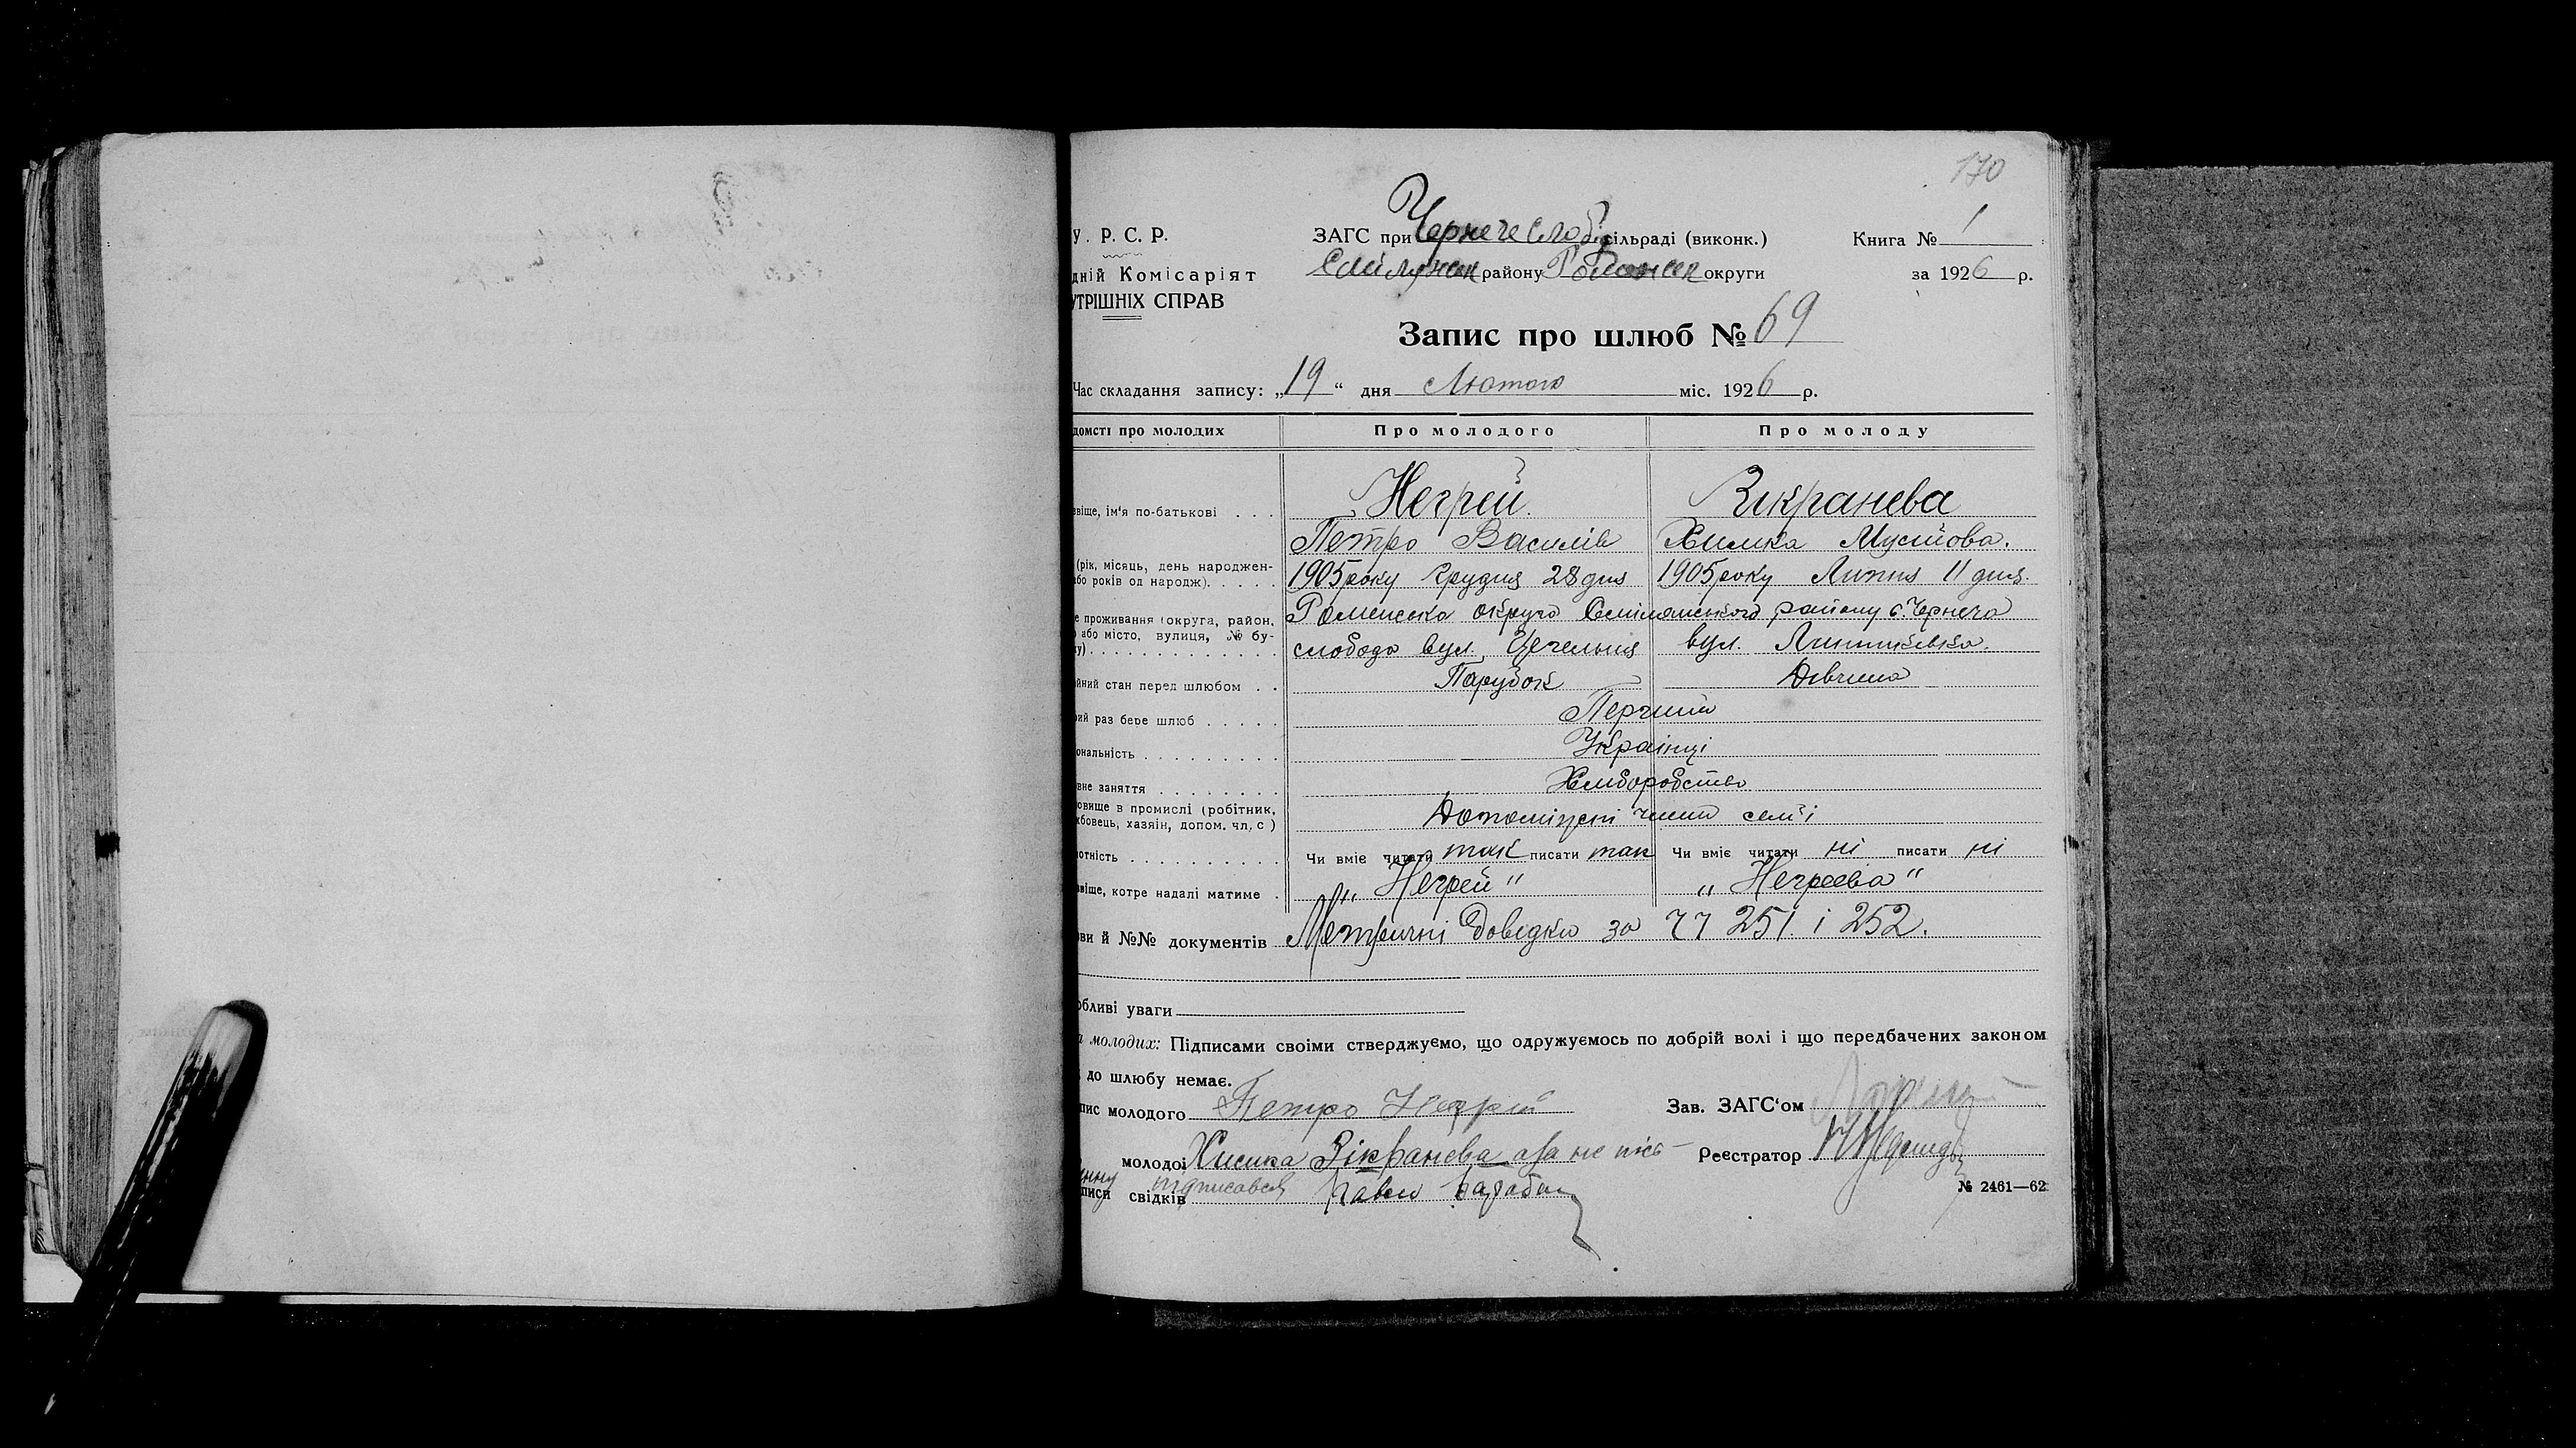 170
У. Р. С. Р. ЗАГС при Чернече Слоб. сільраді (виконк.) Книга № 1
дній Комісаріят району Роменськ округи за 1926 р.
УТРІШНІХ СПРАВ
Запис про шлюб № 69
Час складання запису: „19“ дня Лютого міс. 1926 р.
домсті про молодих Про молодого Про молоду
звіще, ім'я по-батькові . . . Негрей Зікранева
Петро Василів Мусійова.
(рік, місяць, день народжен-
або років од народж). . . . . 1905 року Грудня 28 дня 1905 року Липня 11 дня.
е проживання (округа, район, Роменська округа Смілянського району с. Чернеча
або місто, вулиця, № бу-
ку) . . . . . . . . . . . . . слобода вул. вул.
йний стан перед шлюбом . . Парубок Дівчина
рий раз бере шлюб . . . . . Перший
ональність . . . . . . . . . Українці
вне заняття . . . . . . . . Хліборобство
овище в промислі (робітник,
жбовець, хазяін, допом. чл. с) Допоміжні члени сем'ї
отність . . . . . . . . . . Чи вміє читати так писати так Чи вміє читати ні писати ні
звіще, котре надалі матиме . „Негрей" „Негреєва"
ви й №№ документів Метричні довідки за 251 і 252.
обливі уваги
и молодих: Підписами своіми стверджуємо, що одружуємось по добрій волі і що передбачених законом
до шлюбу немає.
пис молодого Петро Негрій Зав. ЗАГС'ом
молодоі Зікранева а за не Реєстратор
писи свідків підписався Павло Барабаш № 2461—62